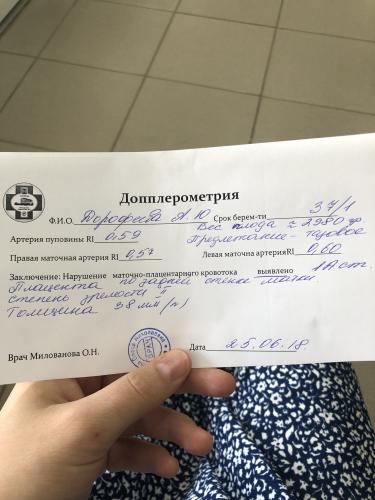 Допплерометрия
Ф.И.О. Дорофеева А.Ю Срок берем-ти 37/1
Вес плода ≈ 2980 гр
Артерия пуповины RI 0,59 Предлежание - тазовое
Правая маточная артерия RI 0,57 Левая маточная артерия RI 0,60
Заключение: Нарушение маточно-плацентарного кровотока выявлено 1А ст.
Плацента по задней стенке матки.
степень зрелости II
Толщина 38 мм (N)
Врач Милованова О.Н. Дата 25.06.18